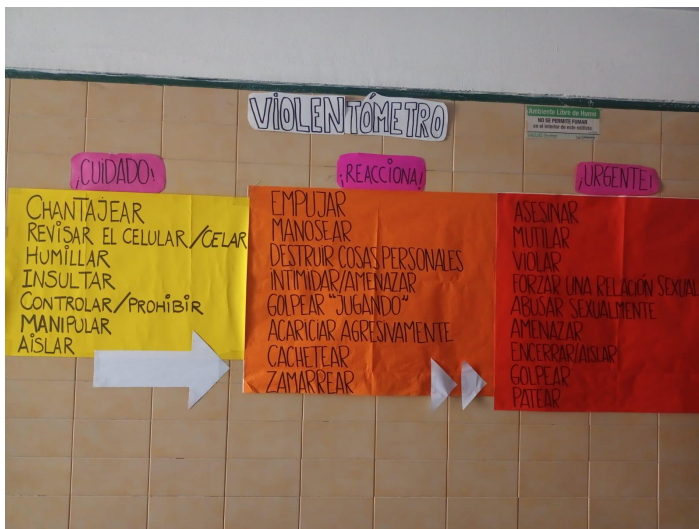 VIOLENTÓMETRO
Ambiente Libre de Humo
NO SE PERMITE FUMAR
en el interior de este edificio
¡CUIDADO!
CHANTAJEAR
REVISAR EL CELULAR/CELAR
HUMILLAR
INSULTAR
CONTROLAR/PROHIBIR
MANIPULAR
AISLAR
¡REACCIONA!
EMPUJAR
MANOSEAR
DESTRUIR COSAS PERSONALES
INTIMIDAR/AMENAZAR
GOLPEAR "JUGANDO"
ACARICIAR AGRESIVAMENTE
CACHETEAR
ZAMARREAR
¡URGENTE!
ASESINAR
MUTILAR
VIOLAR
FORZAR UNA RELACIÓN SEXUAL
ABUSAR SEXUALMENTE
AMENAZAR
ENCERRAR/AISLAR
GOLPEAR
PATEAR